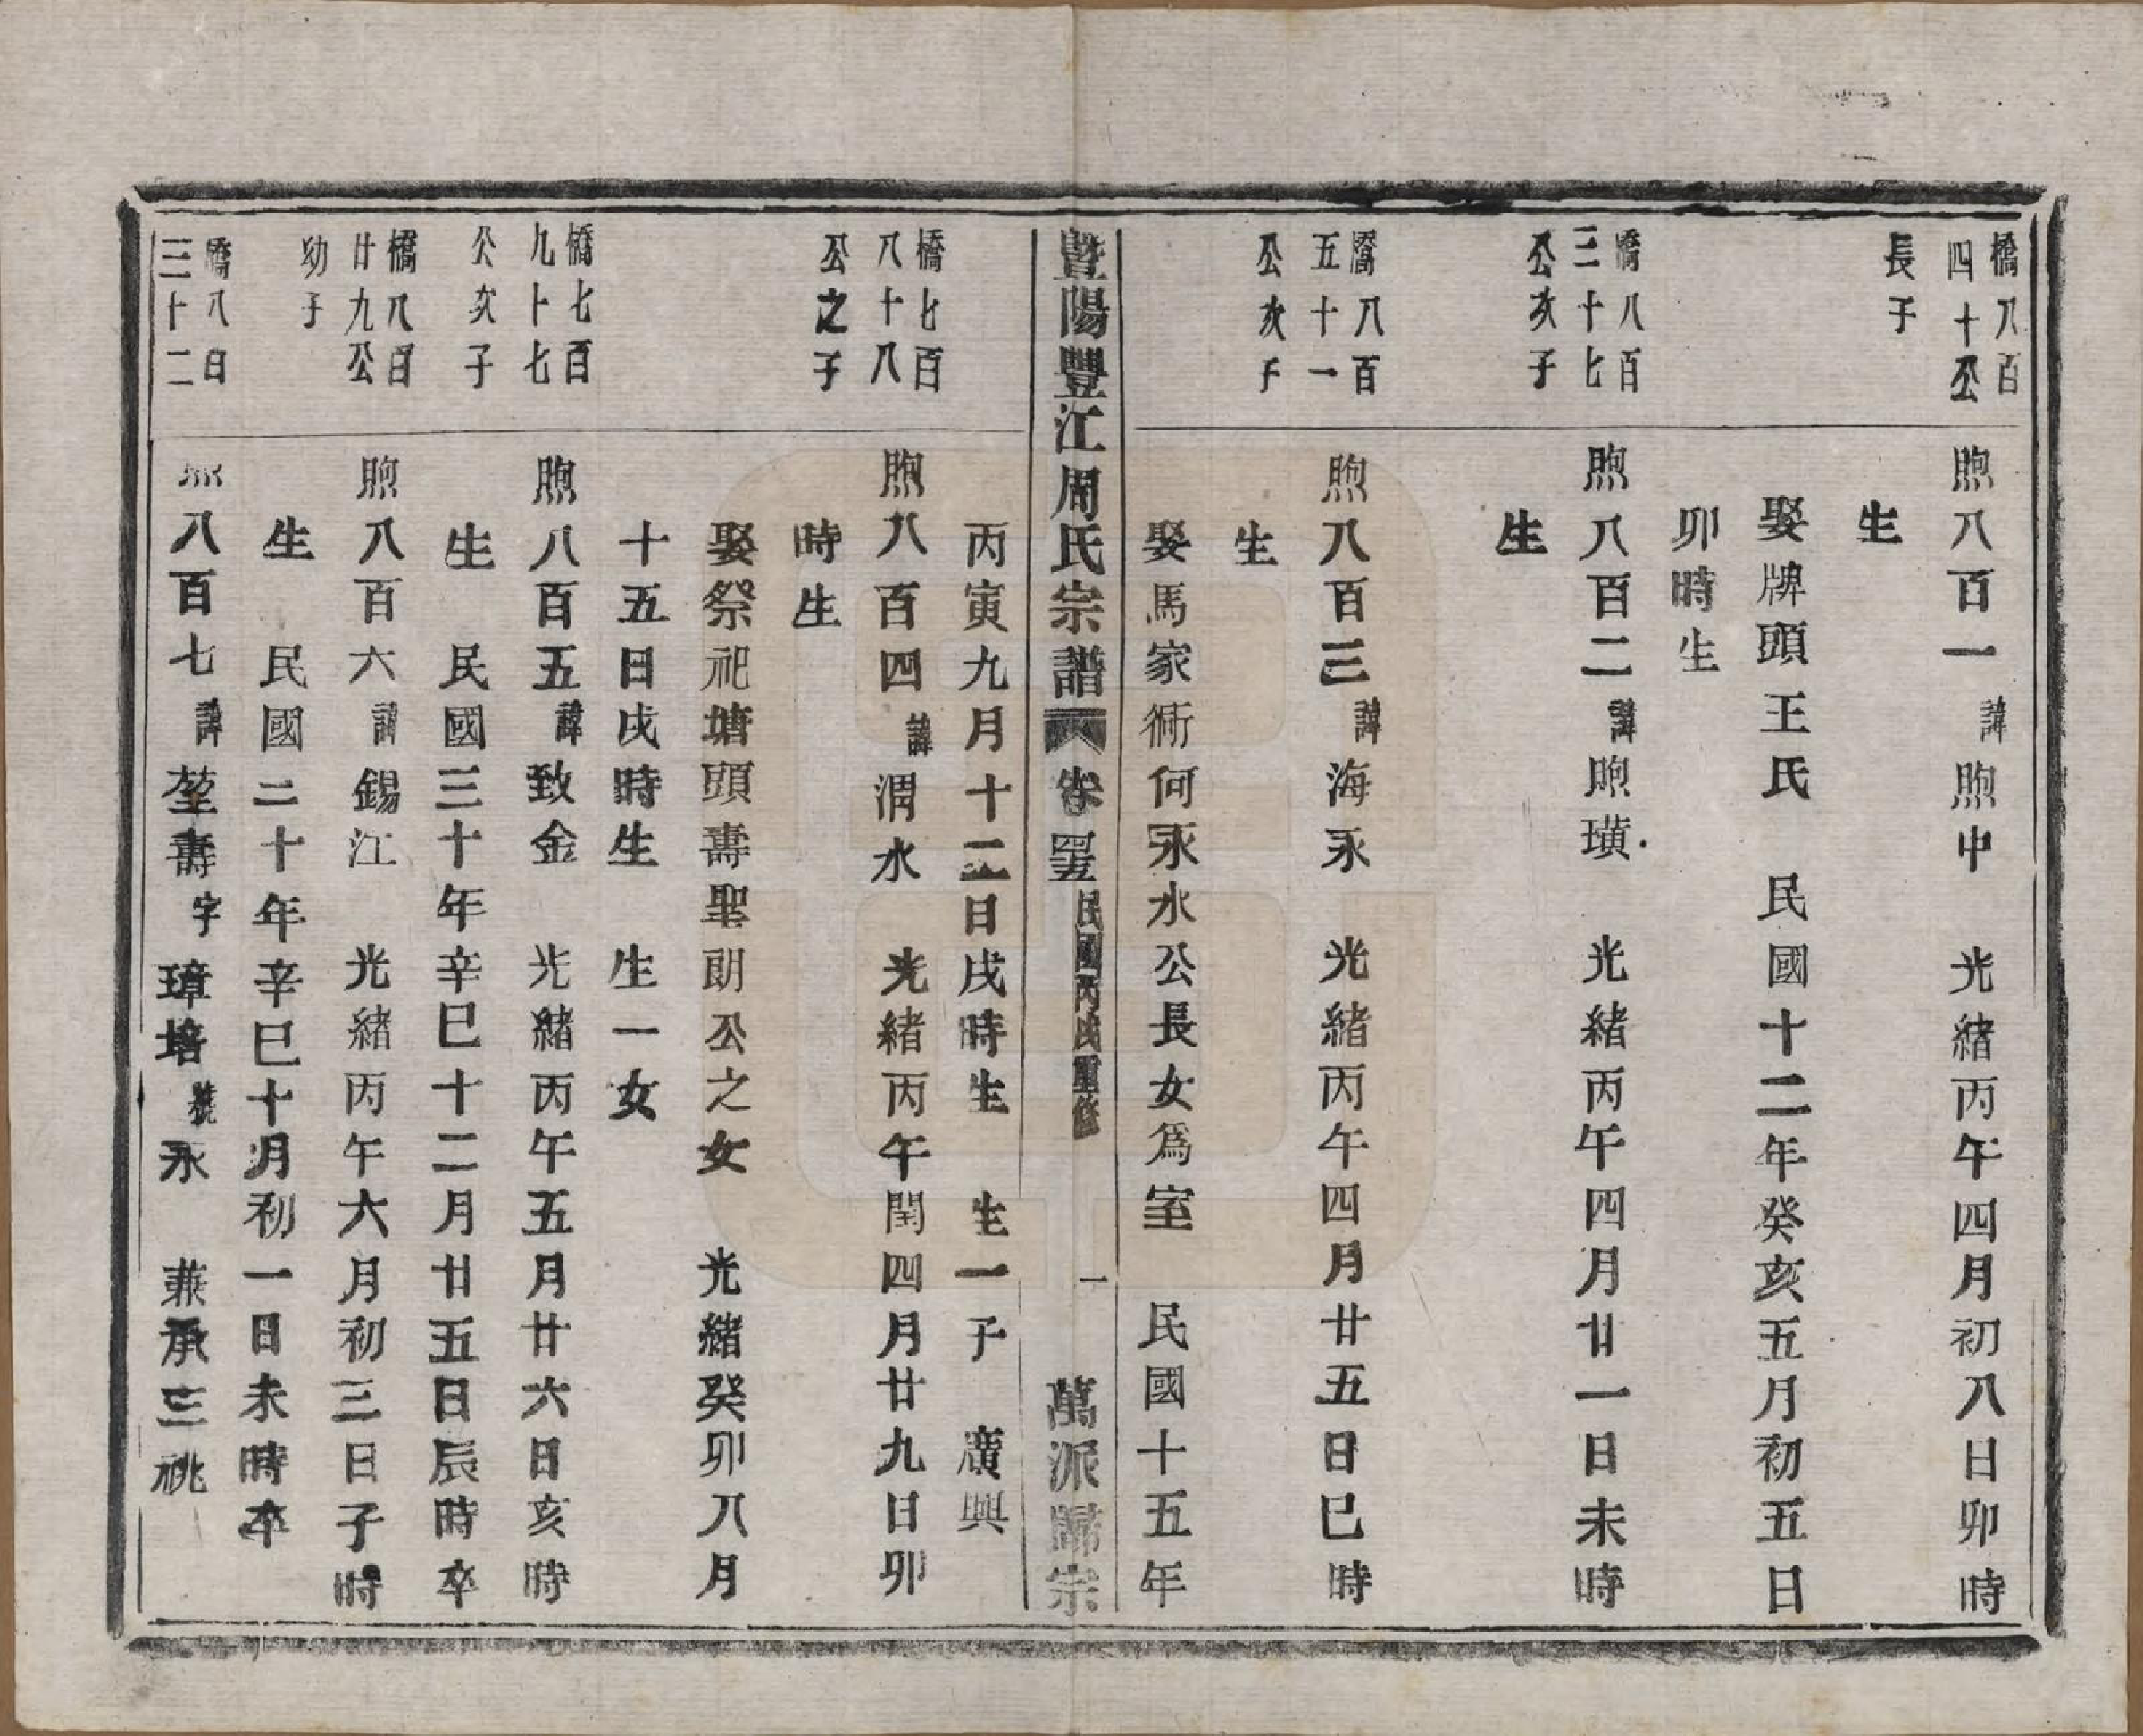 橋八百
四十公
長子
煦八百一諱煦中 光緒丙午四月初八日卯時
生
娶牌頭王氏 民國十二年癸亥五月初五日
卯時生
橋八百
三十七
公次子
煦八百二諱煦璜 光緒丙午四月廿一日未時
生
橋八百
五十一
公次子
煦八百三諱海永 光緒丙午四月廿五日巳時
生
娶馬家衕何永水公長女爲室 民國十五年
暨陽豐江周氏宗譜 卷四五 民國丙戌重修 一 萬派歸宗
丙寅九月十二日戌時生 生一子 廣興
橋七百
八十八
公之子
煦八百四諱渭水 光緒丙午閏四月廿九日卯
時生
娶祭祀塘頭壽聖朗公之女 光緒癸卯八月
十五日戌時生 生一女
橋七百
九十七
公次子
煦八百五諱致金 光緒丙午五月廿六日亥時
生 民國三十年辛巳十二月廿五日辰時卒
橋八百
廿九公
幼子
煦八百六諱錫江 光緒丙午六月初三日子時
生 民國二十年辛巳十月初一日未時卒
橋八百
三十二
煦八百七諱堃壽字璋培號永 兼承三祧